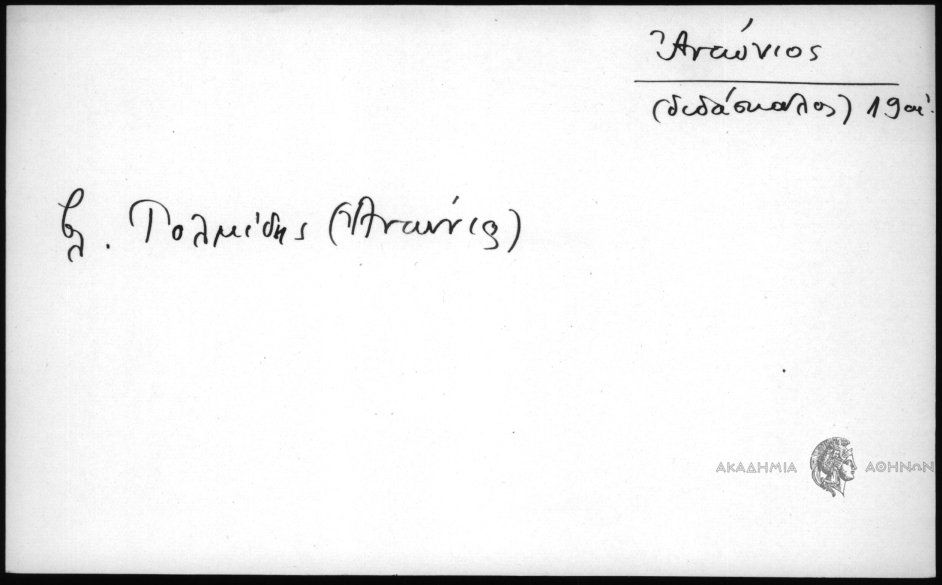 Ἀντώνιος
(διδάσκαλος) 19ου αἰ.
βλ. Τολμίδης (Ἀντώνιος)
ΑΚΑΔΗΜΙΑ ΑΘΗΝΩΝ